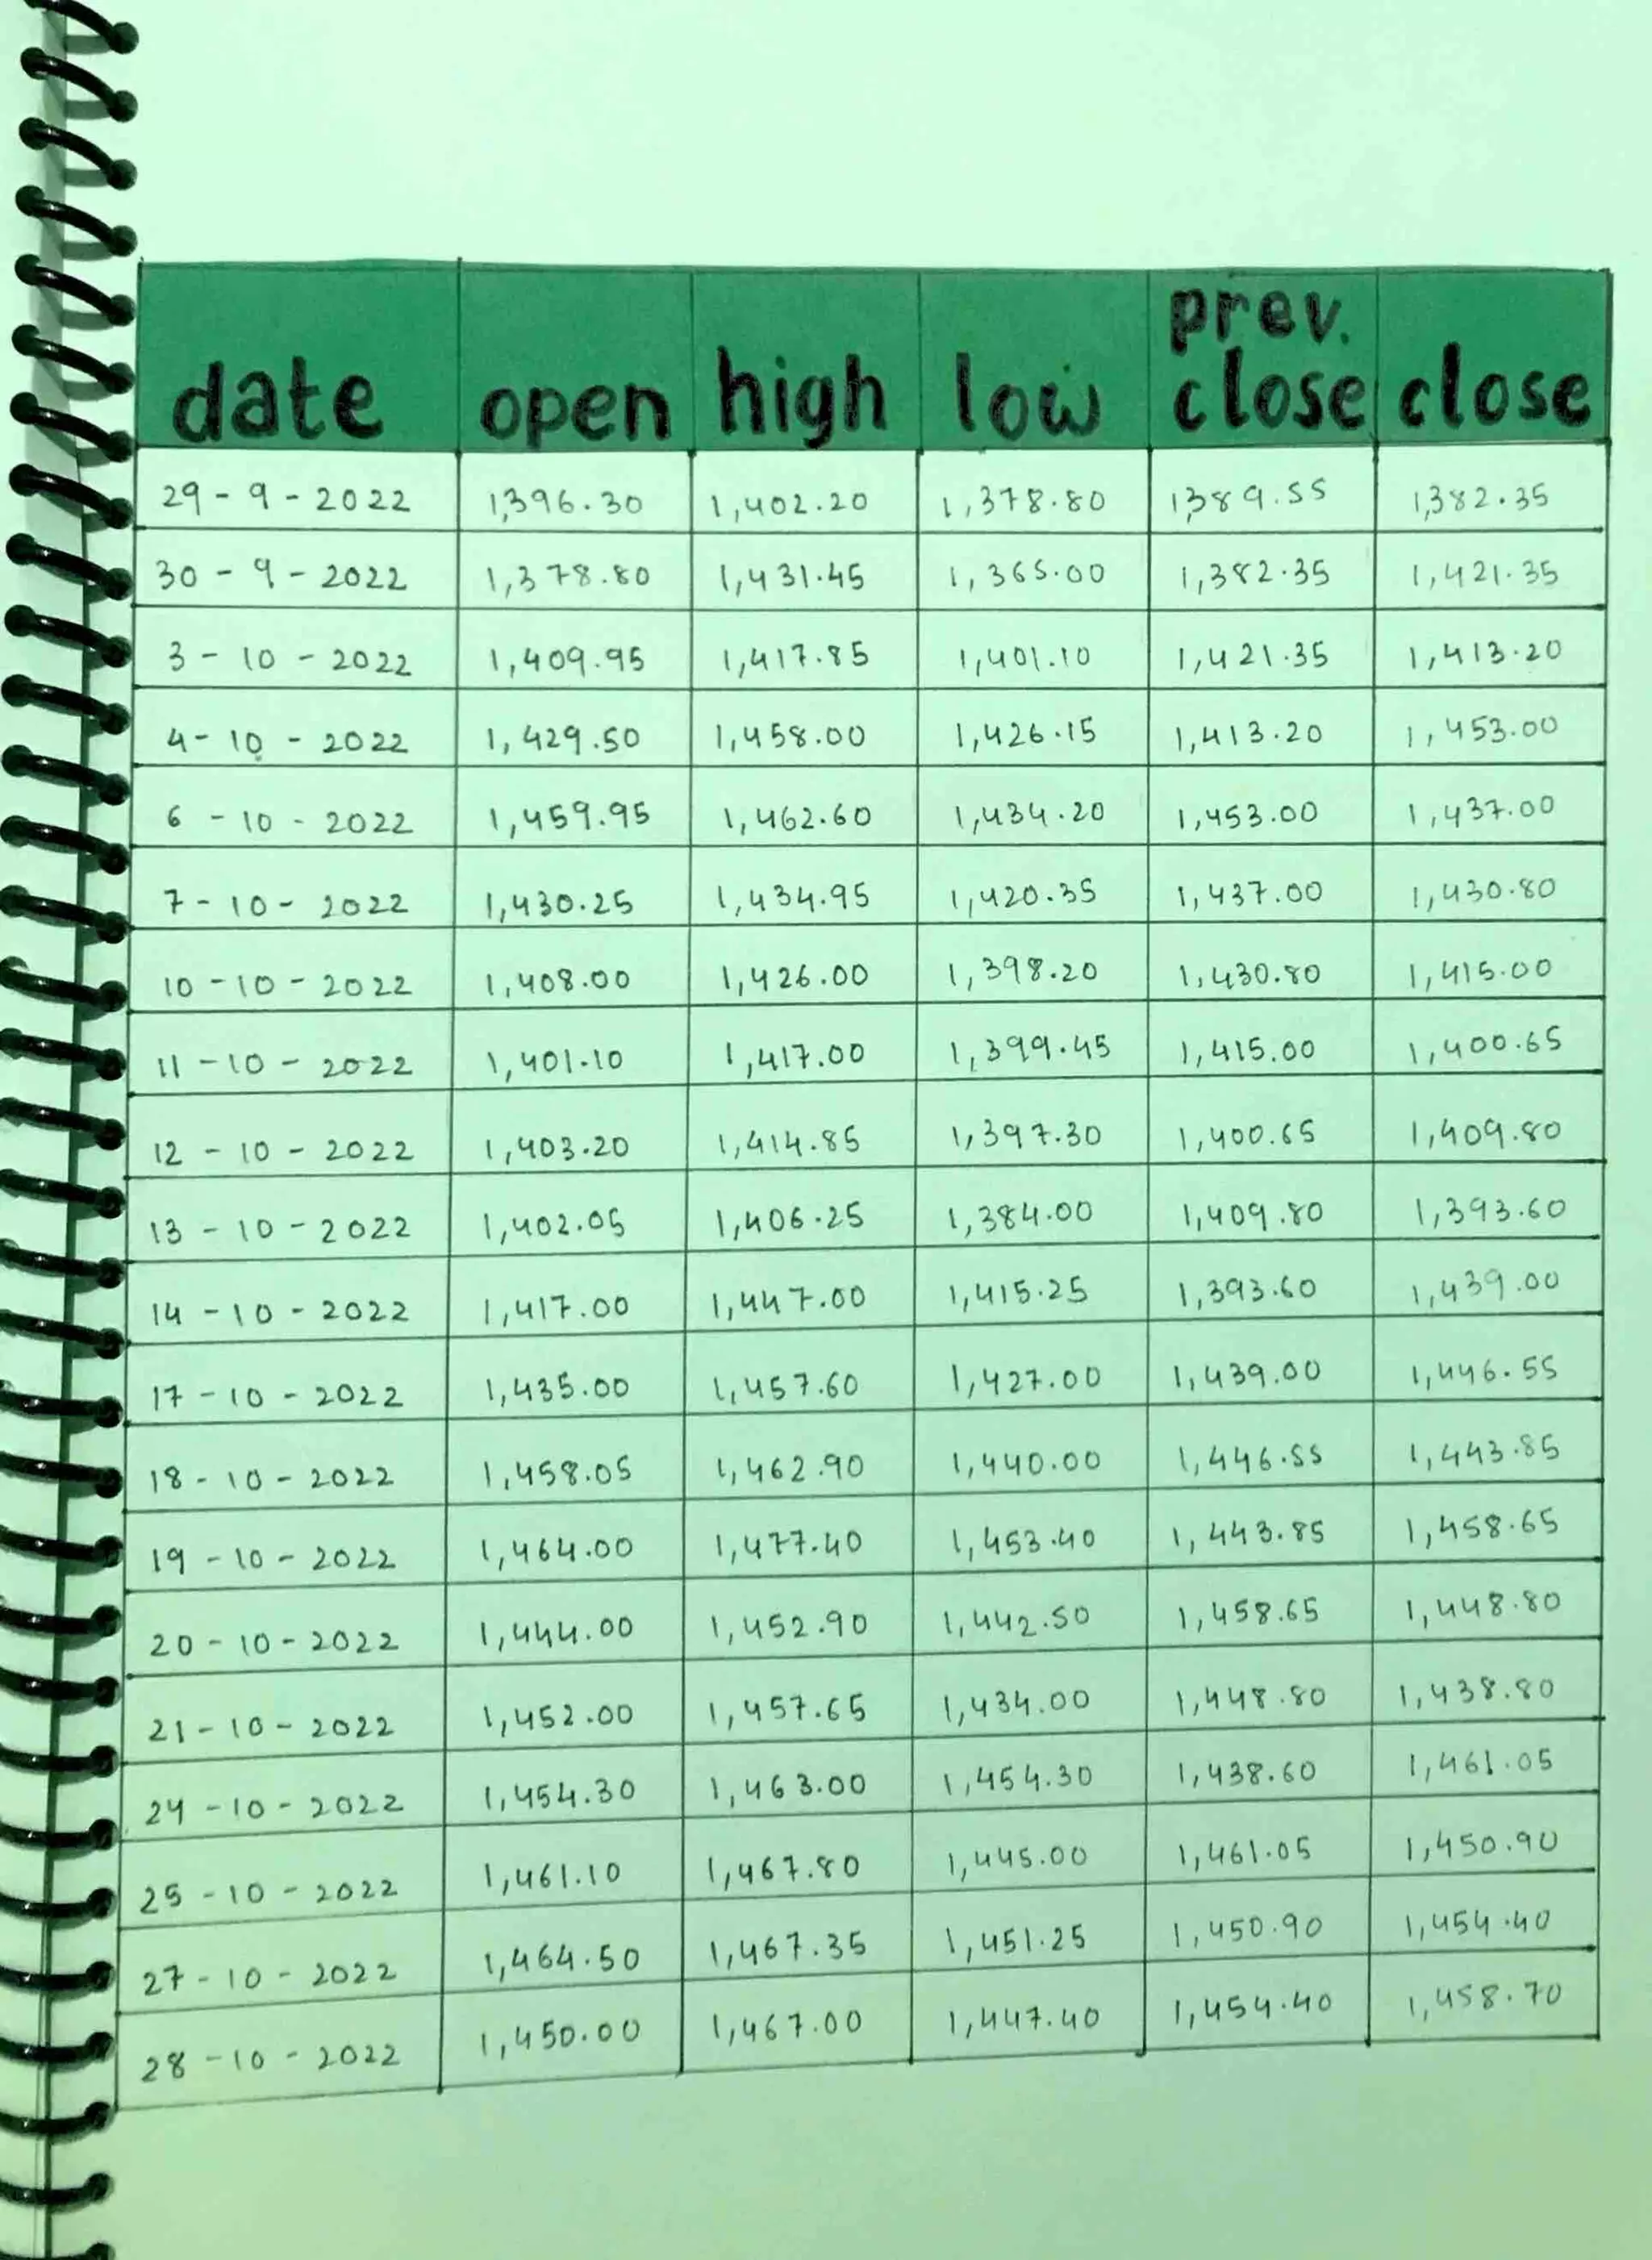 date open high low prev. close close
29 - 9 - 2022 1,396.30 1,402.20 1,378.80 1,389.55 1,382.35
30 - 9 - 2022 1,378.80 1,431.45 1,365.00 1,382.35 1,421.35
3 - 10 - 2022 1,409.95 1,417.85 1,401.10 1,421.35 1,413.20
4 - 10 - 2022 1,429.50 1,458.00 1,426.15 1,413.20 1,453.00
6 - 10 - 2022 1,459.95 1,462.60 1,434.20 1,453.00 1,437.00
7 - 10 - 2022 1,430.25 1,434.95 1,420.35 1,437.00 1,430.80
10 - 10 - 2022 1,408.00 1,426.00 1,398.20 1,430.80 1,415.00
11 - 10 - 2022 1,401.10 1,417.00 1,399.45 1,415.00 1,400.65
12 - 10 - 2022 1,403.20 1,414.85 1,397.30 1,400.65 1,409.80
13 - 10 - 2022 1,402.05 1,406.25 1,384.00 1,409.80 1,393.60
14 - 10 - 2022 1,417.00 1,447.00 1,415.25 1,393.60 1,439.00
17 - 10 - 2022 1,435.00 1,457.60 1,427.00 1,439.00 1,446.55
18 - 10 - 2022 1,458.05 1,462.90 1,440.00 1,446.55 1,443.85
19 - 10 - 2022 1,464.00 1,477.40 1,453.40 1,443.85 1,458.65
20 - 10 - 2022 1,444.00 1,452.90 1,442.50 1,458.65 1,448.80
21 - 10 - 2022 1,452.00 1,457.65 1,434.00 1,448.80 1,438.80
24 - 10 - 2022 1,454.30 1,463.00 1,454.30 1,438.60 1,461.05
25 - 10 - 2022 1,461.10 1,467.80 1,445.00 1,461.05 1,450.90
27 - 10 - 2022 1,464.50 1,467.35 1,451.25 1,450.90 1,454.40
28 - 10 - 2022 1,450.00 1,467.00 1,447.40 1,454.40 1,458.70